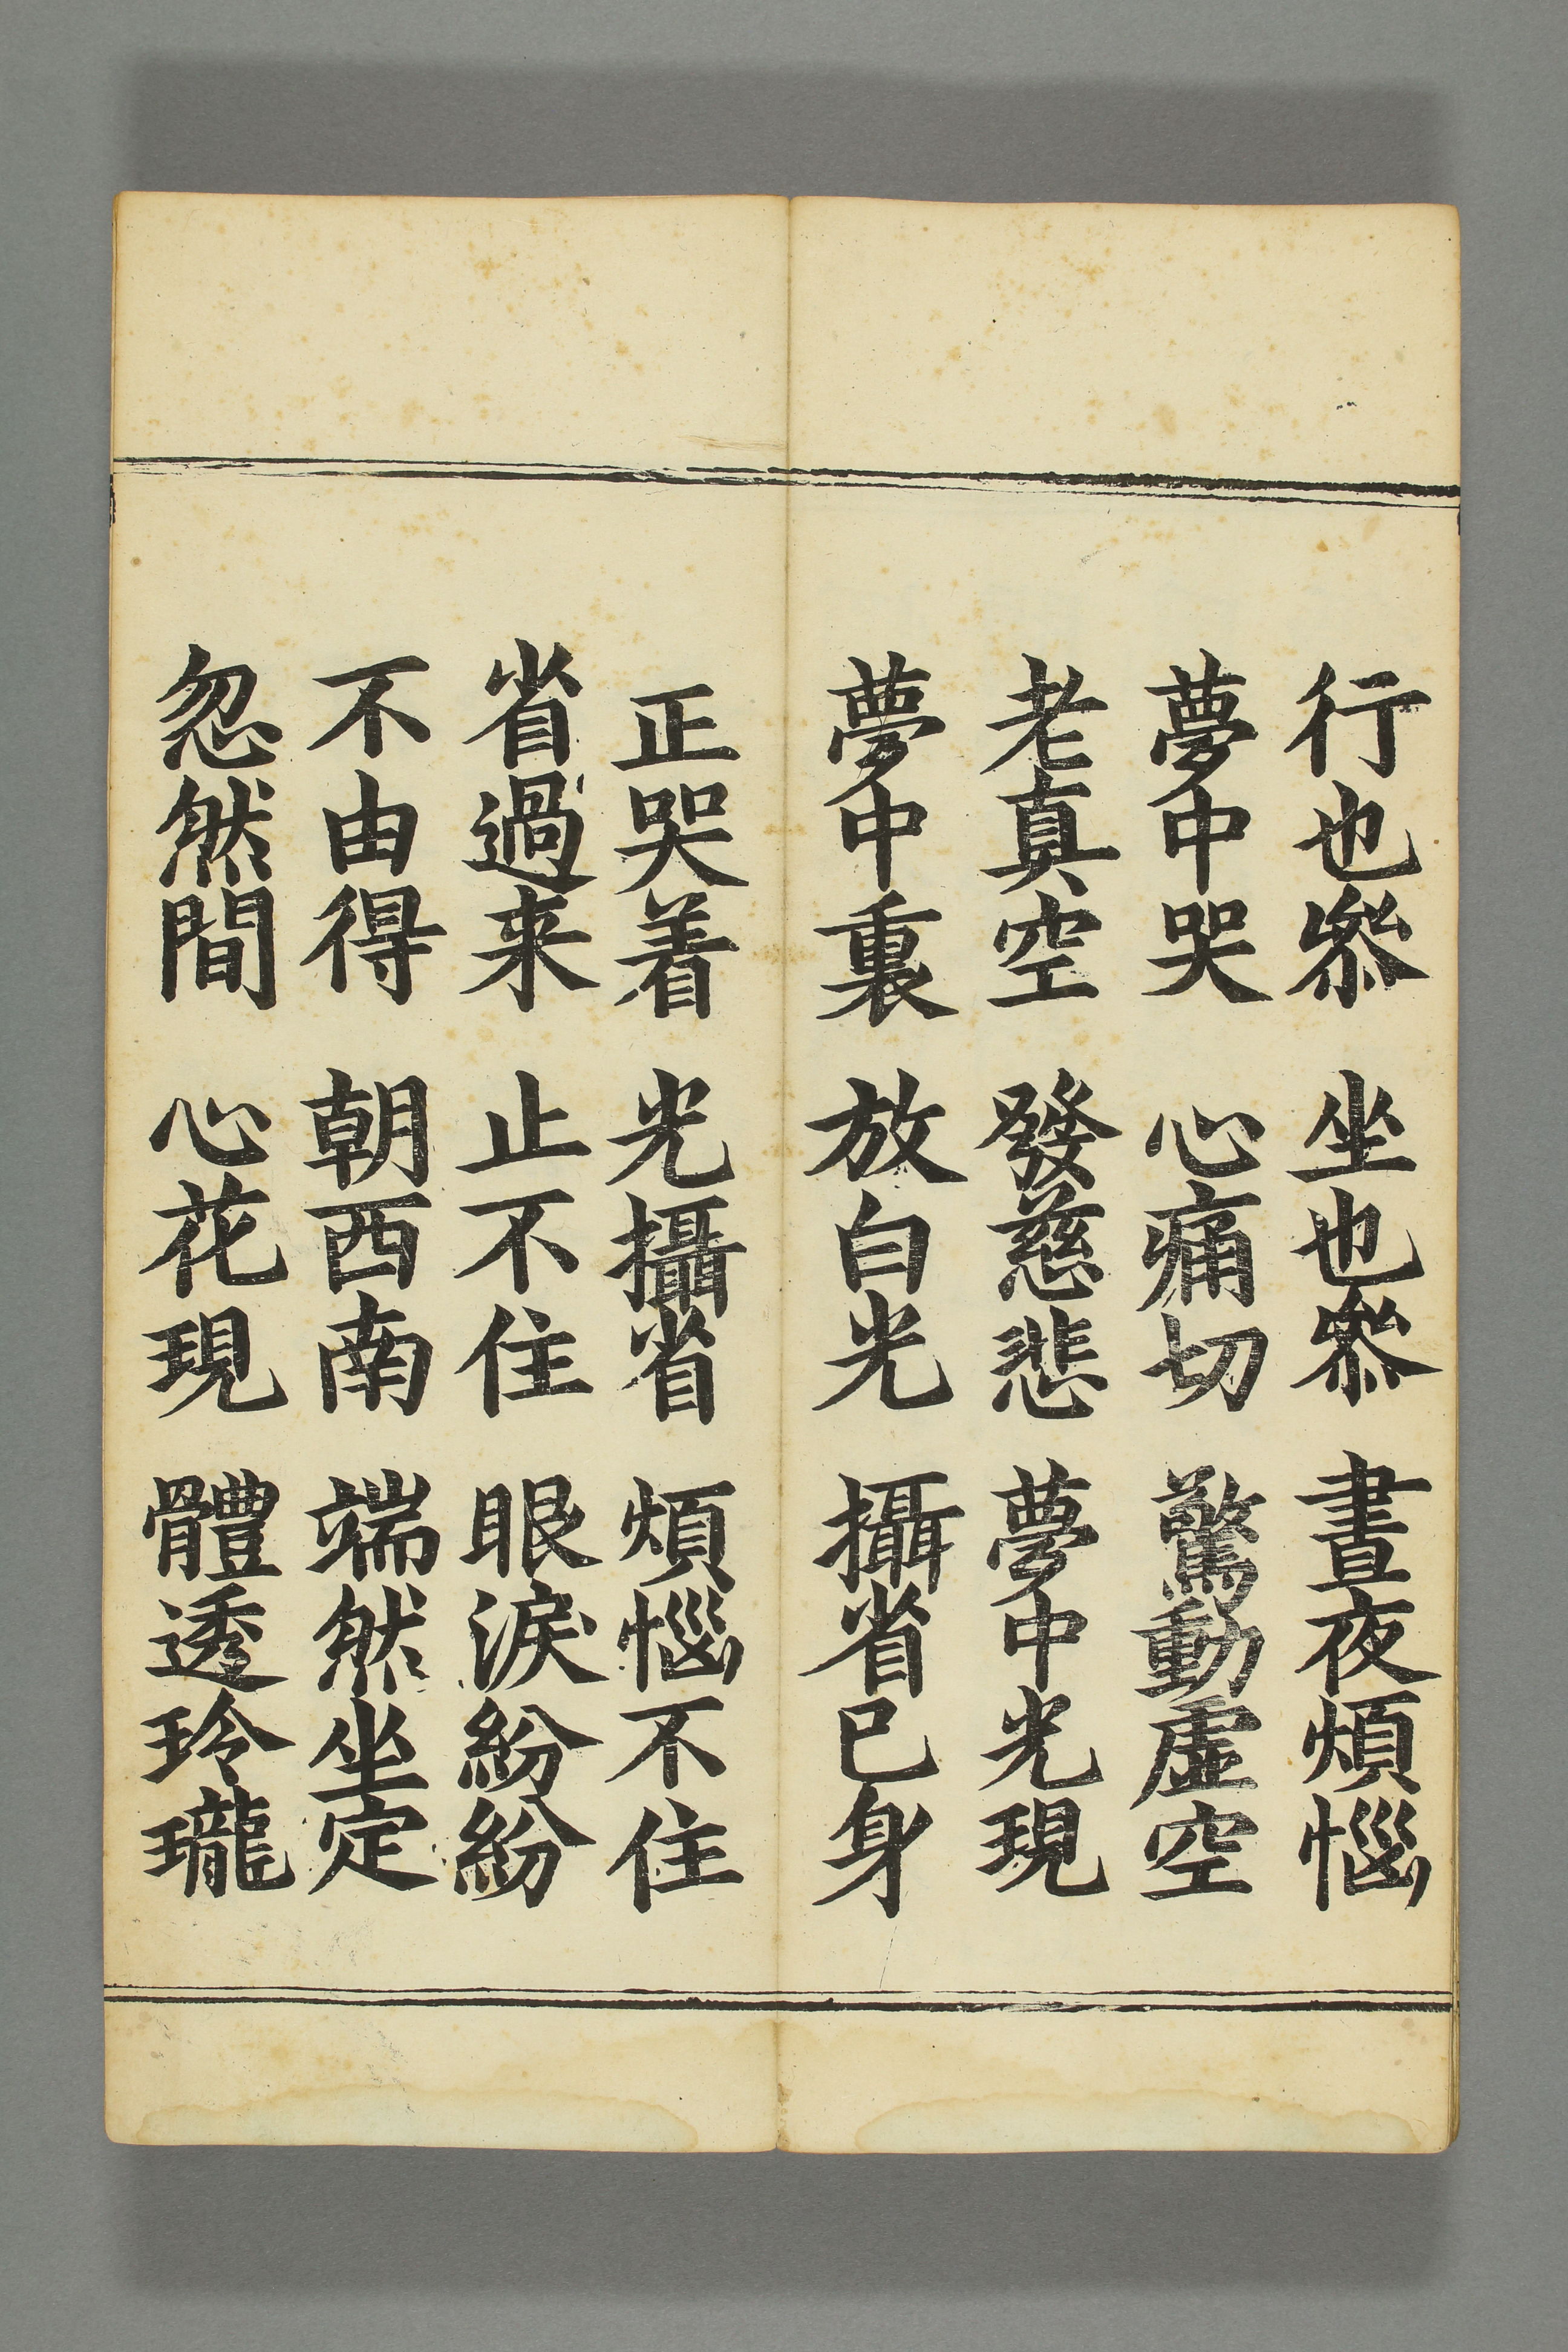 行也叅 坐也叅 晝夜煩惱
夢中哭 心痛切 驚動虛空
老真空 發慈悲 夢中光現
夢中裏 放白光 攝省已身
正哭着 光攝省 煩惱不住
省過来 止不住 眼淚紛紛
不由得 朝西南 端然坐定
忽然間 心花現 體透玲瓏